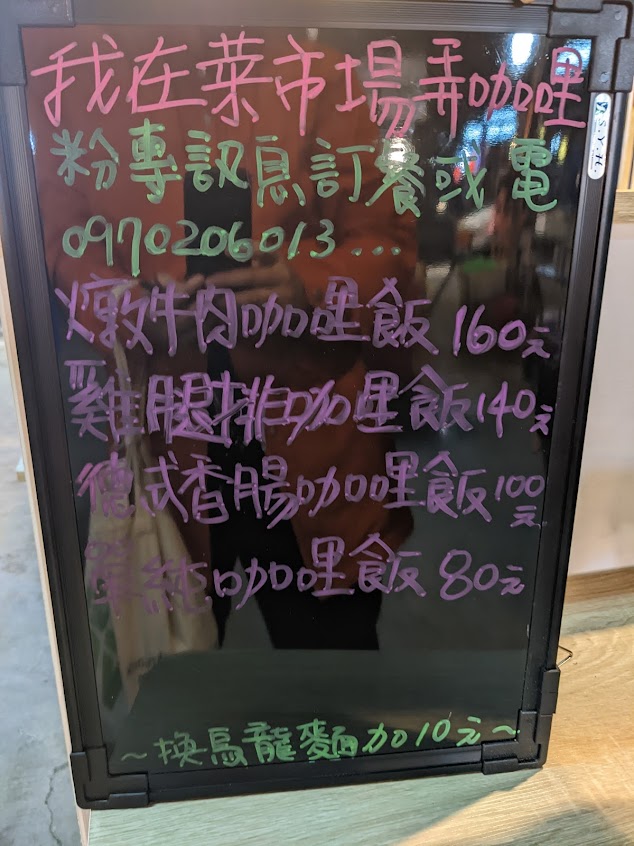 我在菜市場弄咖哩
S.Y.H.
粉專訊息訂餐或電
0970206013...
燉牛肉咖哩飯 160元
雞腿排咖哩飯 140元
德式香腸咖哩飯 100元
單純咖哩飯 80元
~換烏龍麵加10元~